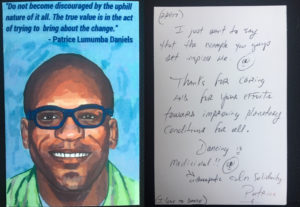 "Do not become discouraged by the uphill
nature of it all. The true value is in the act
of trying to bring about the change."
- Patrice Lumumba Daniels
I just want to say
that the example you guys
set inspire me
Thanks for caring
as for your efforts
towards improving planetary
conditions for all.
Dancing is
medicinal!!
Solidarity
Patrice
(I love to dance)